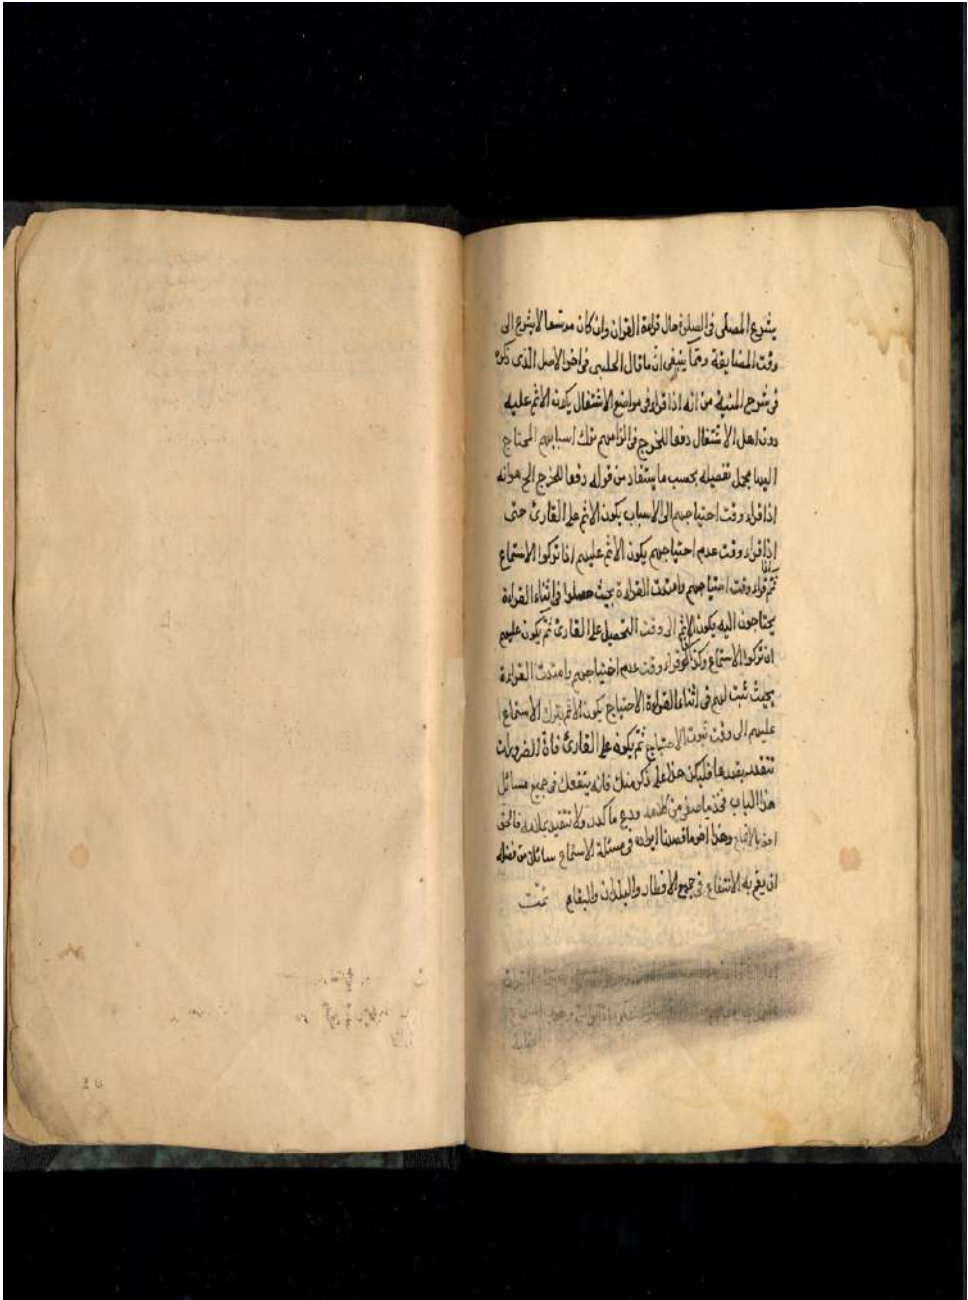 يشرع المصلى فى الصلوة حال قراءة القران وان كان متسعا لا يشرع الى
وقت المضايقة ومما ينبغى ان ما قال الحلبى فى اخر الاصل الذى ذكره
فى شرح المنية من انه اذا قراء فى مواضع الاشتغال يكون الاثم عليه
دون اهل الاشتغال دفعا للحرج فى الزامهم ترك اسبابهم المحتاج
اليها مجمل تفصيله بحسب ما يستفاد من قوله دفعا للحرج الخ هو انه
اذا قراء وقت احتياجهم الى الاسباب يكون الاثم على القارئ حتى
اذا قراء وقت عدم احتياجهم يكون الاثم عليهم اذا تركوا الاستماع
ثم اذا قراء وقت احتياجهم وامتدت القراءة بحيث حصلوا فى اثناء القراءة
يحتاجون اليه يكون الاثم الى وقت التحصيل على القارئ ثم يكون عليهم
ان تركوا الاستماع وكذا لو قراء وقت عدم احتياجهم وامتدت القراءة
بحيث ثبت لهم فى اثناء القراءة الاحتياج يكون الاثم بترك الاستماع
عليهم الى وقت ثبوت الاحتياج ثم يكون على القارئ فان الضرورات
تتقدر بقدرها فليكن هذا على ذكر منك فانه ينفعك فى جميع مسائل
هذا الباب فخذ ما صفى من كلامه ودع ما كدر ولا تتقيد بكلامه فالحق
احق بالاتباع وهذا اخر ما قصدنا ايراده فى مسئلة الاستماع سائلا من فضله
ان يعم به الانتفاع فى جميع الاقطار والبلدان والبقاع تمت